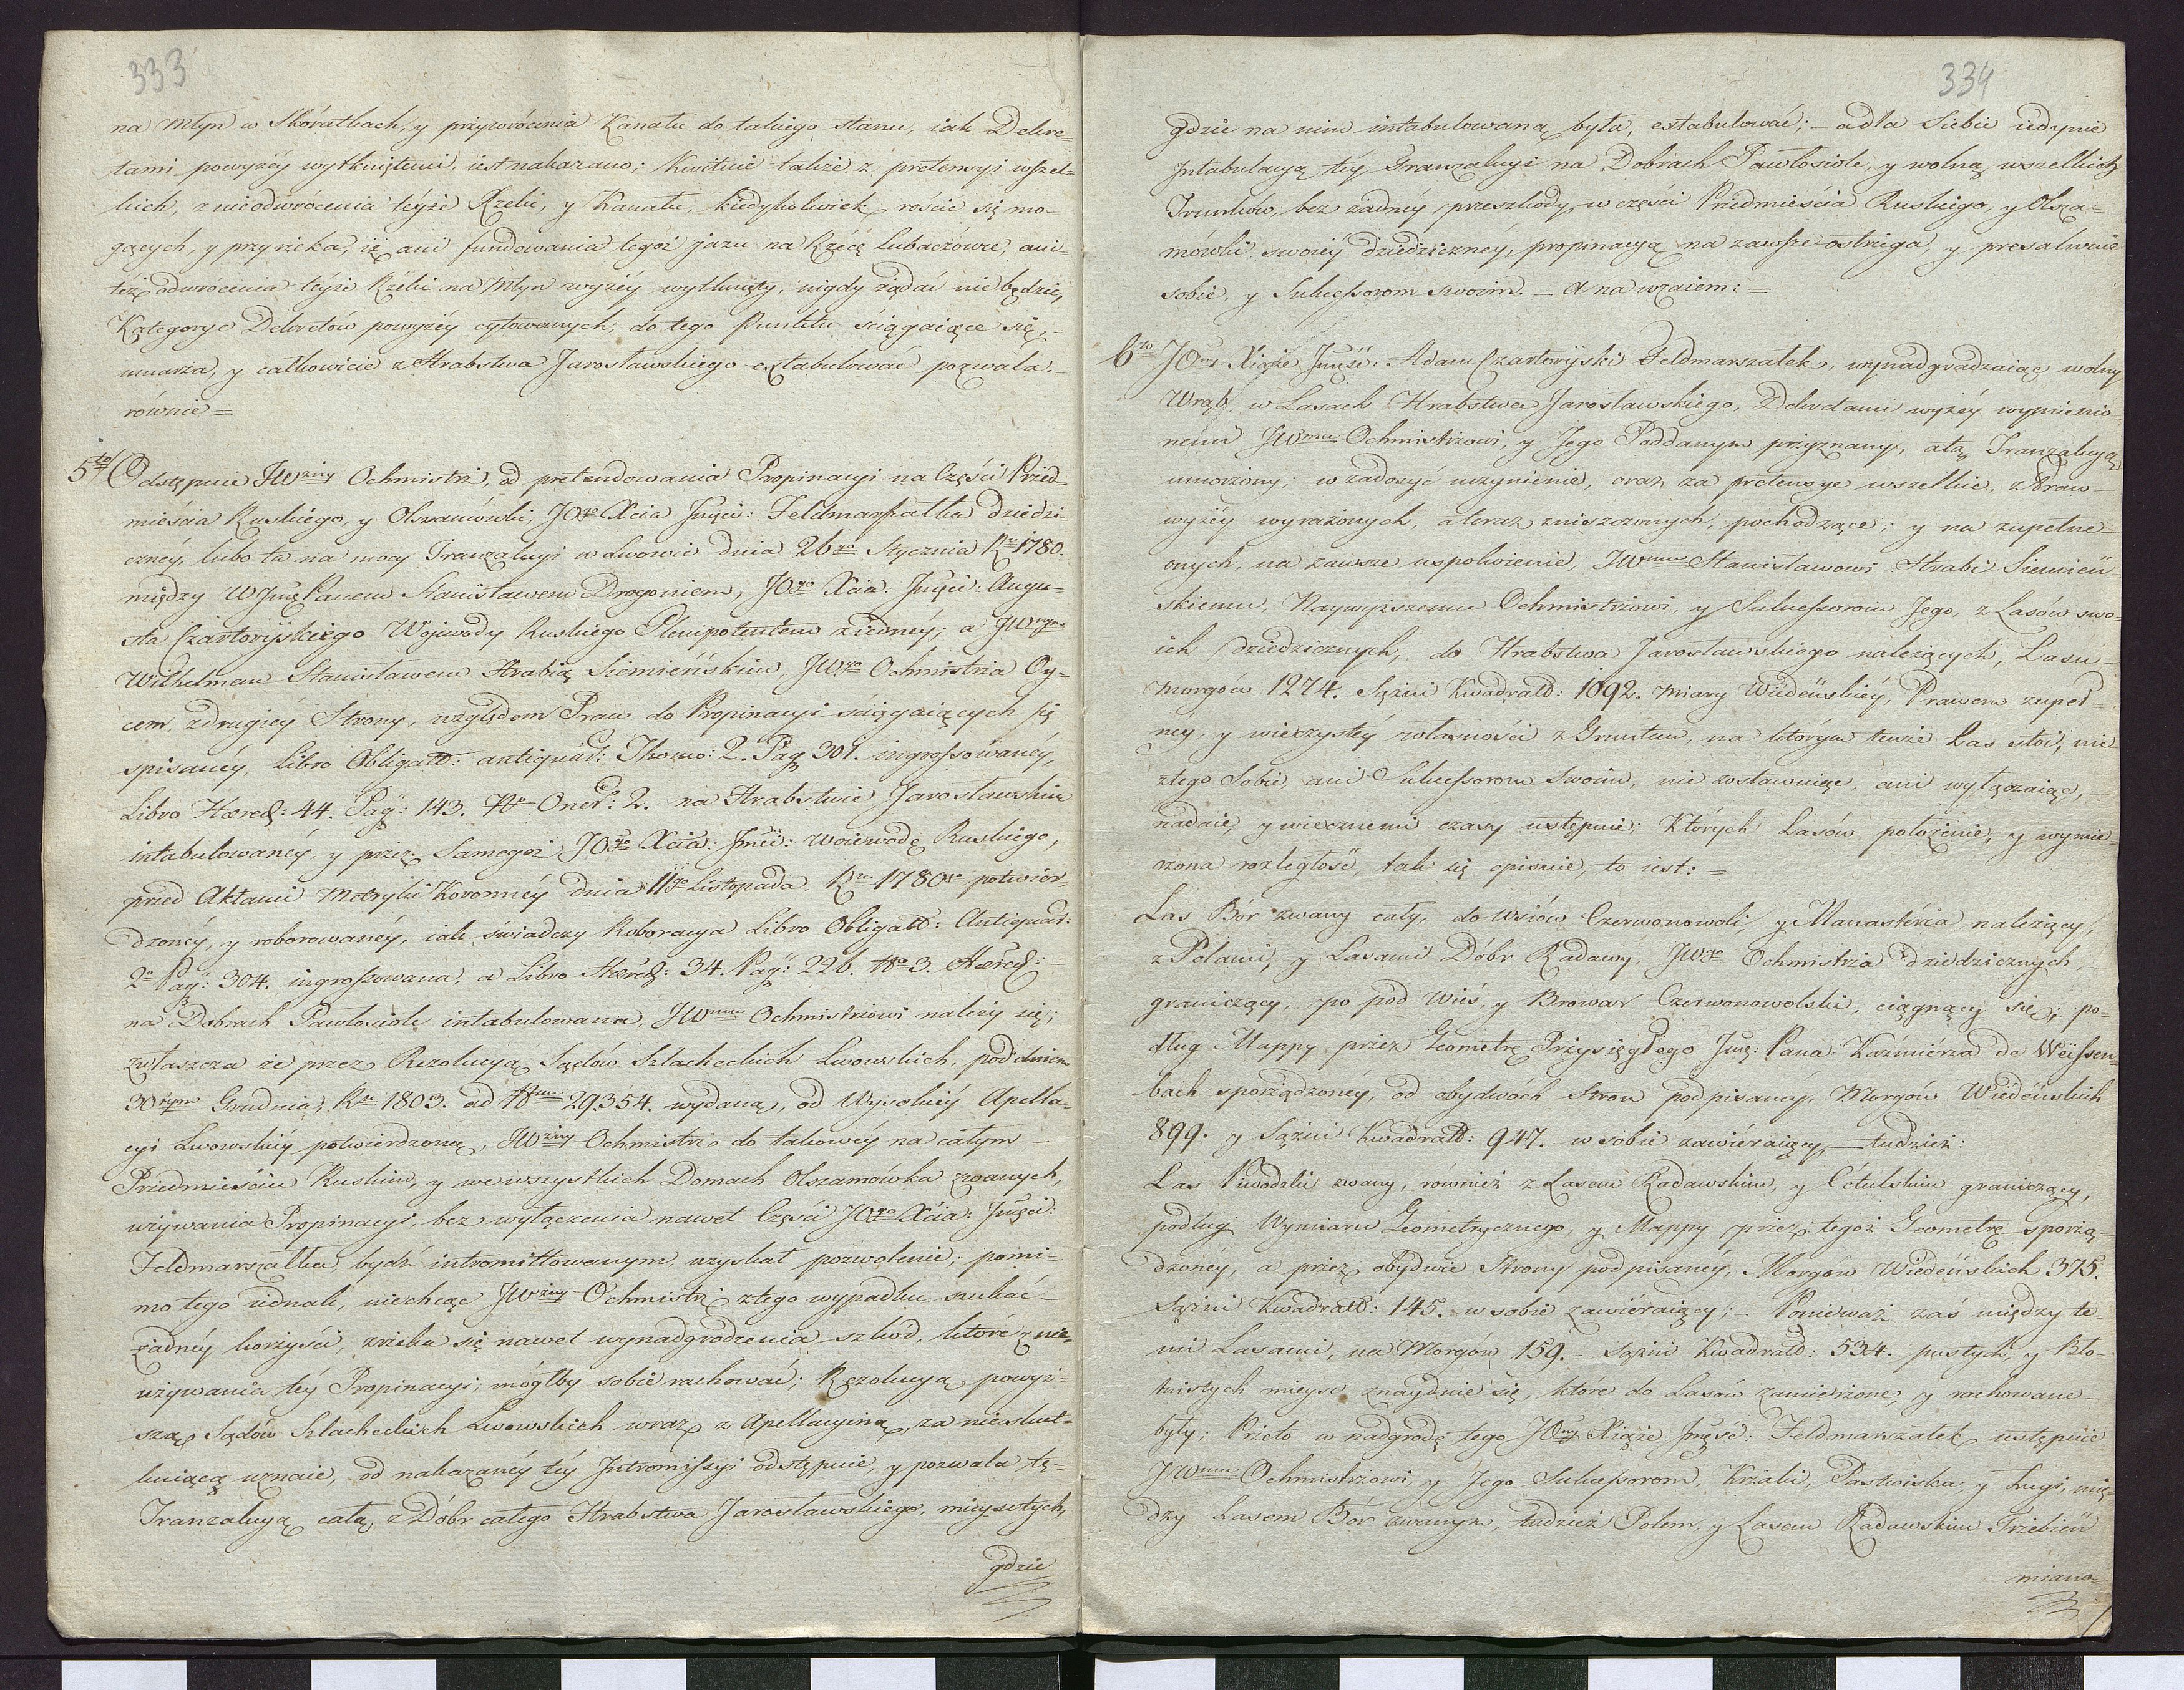 333
na Młyn w Skóratkach, y przywrócenia Kanału do takiego stanu, iak Dekre-
tami powyżéy wytkniętemi, iest nakazano; Kwituie także z pretensyi wszel-
kich, z nieodwrócenia téyże Rzeki, y Kanału, kiedykolwiek rościć się mo-
gących, y przyrzeka, iż ani fundowania tegoż jazu na Rzécę Lubaczówce, ani-
też odwrocenia téyże Rzéki na Młyn wyżéy wytknięty, nigdy żądać nie będzie,
Kategorye Dekretów powyżéy cytowanych, do tego Punktu ściągaiące się,-
umarza, y całkowicie z Hrabstwa Jarosławskiego extabulować pozwala.-
równie=
5to/ Odstępuie JWzny Ochmistrz, od pretendowania Propinacyi na Części Przed-
mieścia Ruskiego, y Olszanówki, JOgo Xcia Jmci: Feldmarszałka dziedzi-
cznéy, lubo ta na mocy Tranzakcyi w Lwowie dnia 26go Stycznia Ru 1780.
między WJmć Panem Stanisławem Drogoniem, JOgo Xcia: Jmći: Augu-
sta Czartoryskiego Wojewody Ruskiego Plenipotentem z iednéy; a JWnym
Wilhelmem Stanisławem Hrabią Siemieńskim, JWgo Ochmistrza Oy-
cem, z drugiéy Strony, względem Praw do Propinacyi ściągaiących się
spisanéy, Libro Obligatt: antiquar: Thomo: 2. Pag 301. ingrossowanéy,
Libro Hæred: 44. Pag: 143. No Oner: 2. na Hrabstwie Jarosławskim
intabulowanéy, y przez Samegoż JOgo Xcia: Jmci: Woiewodę Ruskiego,
przed Aktami Metryki Koronnéy dnia 11go Listopada Ru 1780go potwier-
dzonéy, y roborowanéy, iak świadczy Roboracya Libro Obligatt: Antiquar:
2o Pag: 304. ingrossowana, a Libro Hæred: 34. Pag: 226. No 3. Hæred:-
na Dobrach Pawłosiole intabulowana, JWmu Ochmistrzowi należy się;
zwłaszcza że przez Rezolucyą Sądów Szlacheckich Lwowskich, pod dniem
30tym Grudnia, Ru 1803. ad Num 29354. wydaną, od Wysokiéy Apella-
cyi Lwowskiéy potwierdzoną, JWzny Ochmistrz do takowéy na całym-
Przedmieściu Ruskim, y we wszystkich Domach Olszamówka zwanych,
używania Propinacyi, bez wyłączenia nawet Części JOgo Xcia: Jmści:
Feldmarszałka, bydź intromittowanym, uzyskał pozwolenie; pomi-
mo tego iednak, niechcąc JWzny Ochmistrz z tego wypadku szukać-
żadnéy korzyści, zrzeka się nawet wynadgrodzenia szkód, któré z nie-
używania téy Propinacyi, mógłby sobie rachować; Rezolucyą powyż-
szą Sądów Szlacheckich Lwowskich wraz z Apellacyiną, za niesku-
tkuiącą uznaie, od nakazanéy téy Intromissyi odstępuie, y pozwala tę-
Tranzakcyą całą z Dóbr całego Hrabstwa Jarosławskiego, mieysc tych,
gdzie
334
gdzie na nim intabulowaną była, extabulować;- a dla Siebie iedynie
Intabulacyą téy Tranzakcyi na Dobrach Pawłosiole, y wolną wszelkich
Trunków, bez żadnéy przeszkody, w części Przedmieścia Ruskiego, y Olsza-
mówki, swoiéy dziedzicznéy, propinacyą na zawsze ostrzega, y presalwuie
sobie, y Sukcessorom swoim.- A na wzaiem:=
6to JOny Xiąże Jmść: Adam Czartoryiski Feldmarszałek, wynadgradzaiąc wolny
Wrąb, w Lasach Hrabstwa Jarosławskiego, Dekretami wyżéy wymienio-
nemi JWmu Ochmistrzowi, y Jego Poddanym przyznany, a tą Tranzakcyą
umorzony; w zadosyć uczynienie, oraz za pretensye wszelkie, z Praw-
wyżéy wyrażonych, a teraz zniszczonych, pochodzące; y na zupełne-
onych, na zawsze uspokoienie, JWmu Stanisławowi Hrabi Siemień
skiemu, Naywyższemu Ochmistrzowi, y Sukcessorom Jego, z Lasów swo-
ich dziedzicznych, do Hrabstwa Jarosławskiego należących, Lasu-
Morgów 1274. Sążni Kwadratt: 1092. miary Wiedeńskiéy, Prawem zupeł-
néy, y wieczystéy własności z Gruntem, na którym tenże Las stoi, nic
z tego Sobie ani Sukcessorom Swoim, nie zostawuiąc, ani wyłączaiąc,-
nadaie, y wiecznemi czasy ustępuie; Których Lasów położenie, y wymie-
rzona rozległość, tak się opisuie, to iest:=
Las Bór zwany cały, do Wsiów Czerwonowoli, y Manastérza należący,
z Polami, y Lasami Dóbr Radawy, JWgo Ochmistrza dziedzicznych,-
graniczący, po pod Wieś, y Browar Czerwonowolski, ciągnący się; po-
dług Mappy przez Geometrę Przysięgłego Jmć: Pana Kazimiérza de Weissen-
bach sporządzonéy, od obydwóch Stron podpisanéy, Morgów Wiedeńskich
899. y Sążni Kwadratt: 947. w sobie zawiéraiący,- tudzież:
Las Piwodzki zwany, również z Lasem Radawskim, y Cétulskim graniczący,
podług Wymiaru Geometrycznego, y Mappy przez tegoż Geometrę sporzą-
dzonéy, a przez obydwie Strony podpisanéy, Morgów Wiedeńskich 375.
Sążni Kwadratt: 145. w sobie zawiéraiący;- Ponieważ zaś między te-
mi Lasami, na Morgów 159.- Sążni Kwadratt: 534. pustych, y Bło-
tnistych mieysc znayduie się, które do Lasów zamierzone, y rachowane-
były; Przeto w nadgrodę tego JOny Xiąże Jmść: Feldmarszałek ustępuie
JWmu Ochmistrzowi, y Jego Sukcessorom, Krzaki, Pastwiska, y Ługi, mię-
dzy Lasem Bór zwanym, tudzież Polem, y Lasem Radawskim Trzebień
miano-